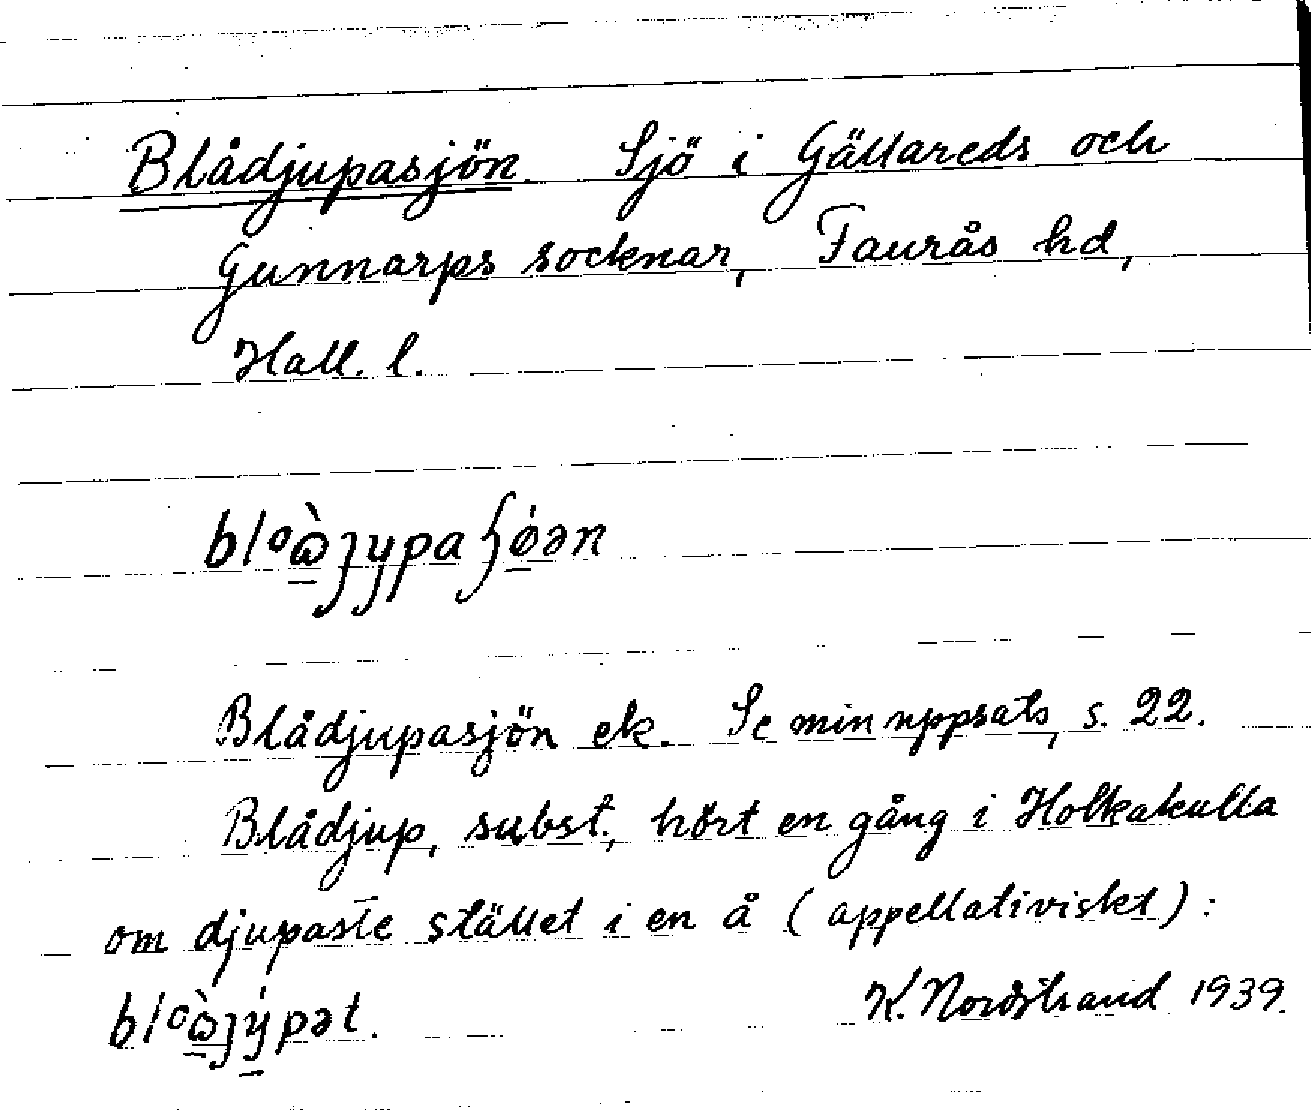 Blådjupasjön. Sjö i Gällareds och
Gunnarps socknar, Faurås hd,
Hall. l.
blᵒὼȷypaʃǿən
Blådjupasjön ek. Se min uppsats, s. 22.
Blådjup, subst., hört en gång i Holkakulla
om djupaste stället i en å (appellativiskt):
blᵒὼȷýpət.
K. Nordstrand 1939.